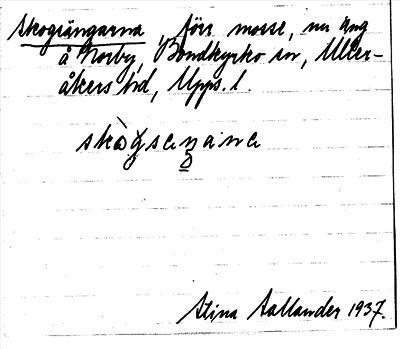 Skogsängarna, förr mosse, nu äng
å Norby, Bondkyrko sn, Uller-
åkers hd, Upps. l.
Stina Aallander 1937.